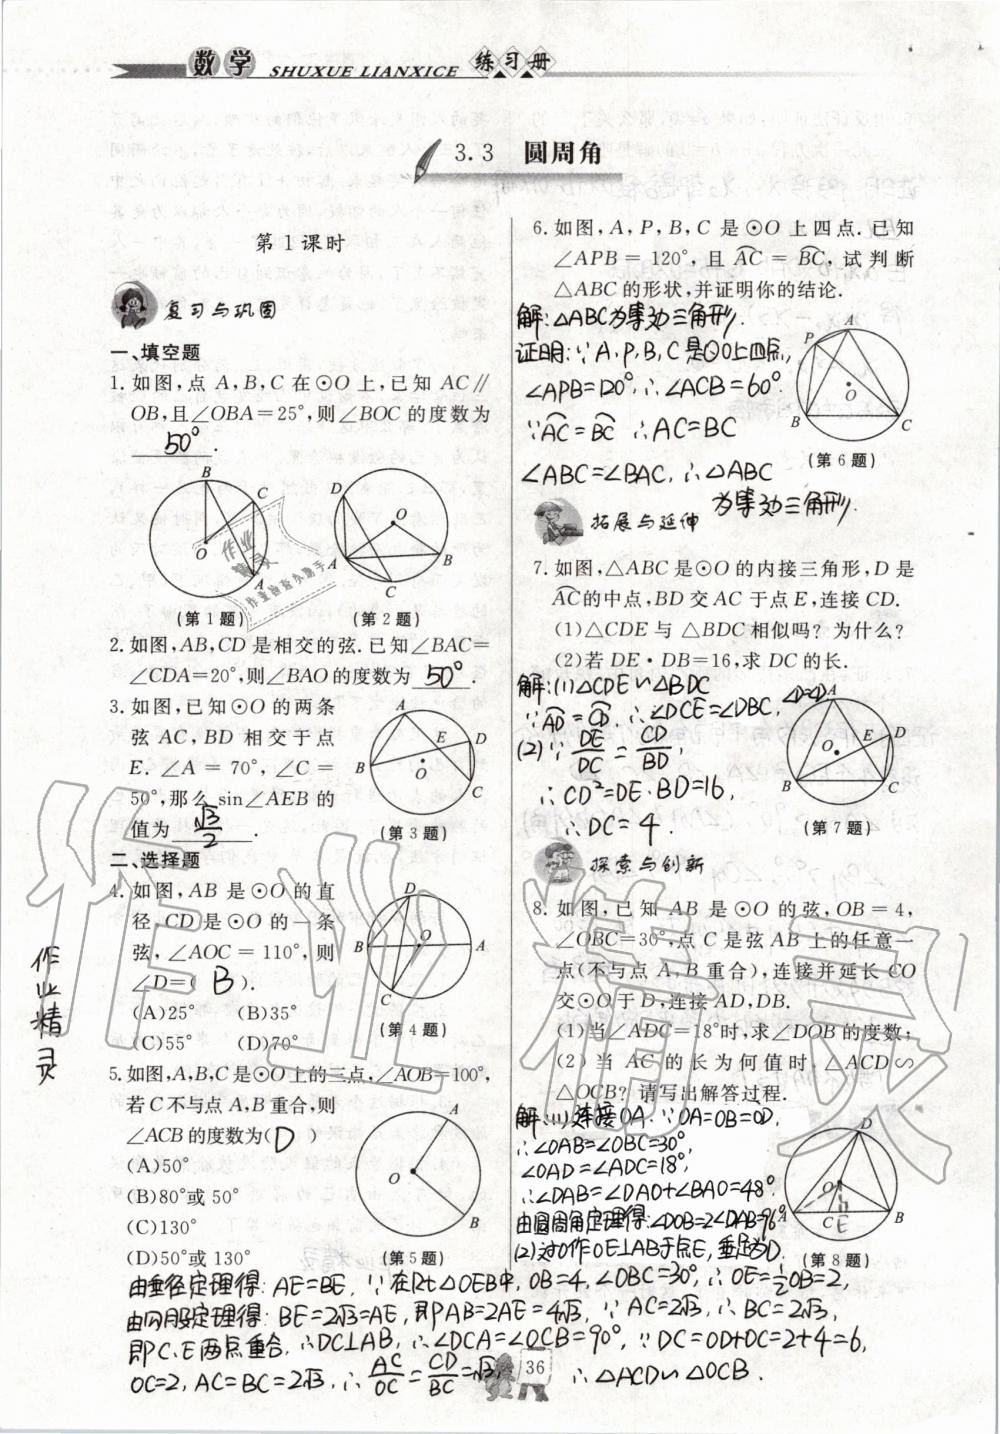 数学 SHUXUE LIANXICE 练习册
3.3 圆周角
第1课时
复习与巩固
一、填空题
1. 如图,点 A,B,C 在⊙O 上,已知 AC∥
OB,且∠OBA=25°,则∠BOC 的度数为
50°.
B C O A
D O B A C
(第1题) (第2题)
2. 如图,AB,CD 是相交的弦.已知∠BAC=
∠CDA=20°,则∠BAO的度数为 50° .
3. 如图,已知⊙O 的两条
弦 AC,BD 相交于点
E.∠A = 70°,∠C =
50°,那么 sin∠AEB 的
值为 √3/2 .
A E D B O C
(第3题)
二、选择题
4. 如图,AB 是⊙O 的直
径,CD 是⊙O 的一条
弦,∠AOC=110°,则
∠D=( B ).
(A)25° (B)35°
(C)55° (D)70°
D B O A C
(第4题)
5. 如图,A,B,C是⊙O上的三点,∠AOB=100°,
若C不与点A,B重合,则
∠ACB的度数为( D )
(A)50°
(B)80°或50°
(C)130°
(D)50°或130°
A O B
(第5题)
6. 如图,A,P,B,C 是⊙O 上四点.已知
∠APB = 120°,且 AC = BC,试判断
△ABC的形状,并证明你的结论.
解:△ABC为等边三角形.
证明:∵A,P,B,C是⊙O上四点,
∠APB=120°,∴∠ACB=60°.
∵AC=BC ∴AC=BC
∠ABC=∠BAC,∴△ABC
为等边三角形.
A P O B C
(第6题)
拓展与延伸
7. 如图,△ABC是⊙O的内接三角形,D是
AC的中点,BD交AC于点E,连接CD.
(1)△CDE与△BDC相似吗?为什么?
(2)若 DE·DB=16,求 DC 的长.
解:(1)△CDE∽△BDC
∵AD=CD,∴∠DCE=∠DBC,∠D=∠D
(2)∵DE/DC=CD/BD,
∴CD²=DE·BD=16,
∴DC=4.
A E D O B C
(第7题)
探索与创新
8. 如图,已知 AB 是⊙O 的弦,OB=4,
∠OBC=30°,点 C 是弦 AB 上的任意一
点(不与点 A,B 重合),连接并延长 CO
交⊙O于D,连接AD,DB.
(1)当∠ADC=18°时,求∠DOB的度数;
(2)当 AC 的长为何值时,△ACD∽
△OCB?请写出解答过程.
解:(1)连接OA.∵OA=OB=OD,
∴∠OAB=∠OBC=30°,
∠OAD=∠ADC=18°,
∴∠DAB=∠DAO+∠BAO=48°.
由圆周角定理得:∠DOB=2∠DAB=96°
(2)过O作OE⊥AB于点E,垂足为D.
D O A C E B
(第8题)
由垂径定理得:AE=BE,∵在Rt△OEB中,OB=4,∠OBC=30°,∴OE=1/2OB=2,
由勾股定理得:BE=2√3=AE,即AB=2AE=4√3,∵AC=2√3,∴BC=2√3,
即C、E两点重合,∴DC⊥AB,∴∠DCA=∠OCB=90°,∵DC=OD+OC=2+4=6,
OC=2,AC=BC=2√3,∴AC/OC=CD/BC=√3, ∴△ACD∽△OCB.
36
作业精灵
作业精灵
作业精灵